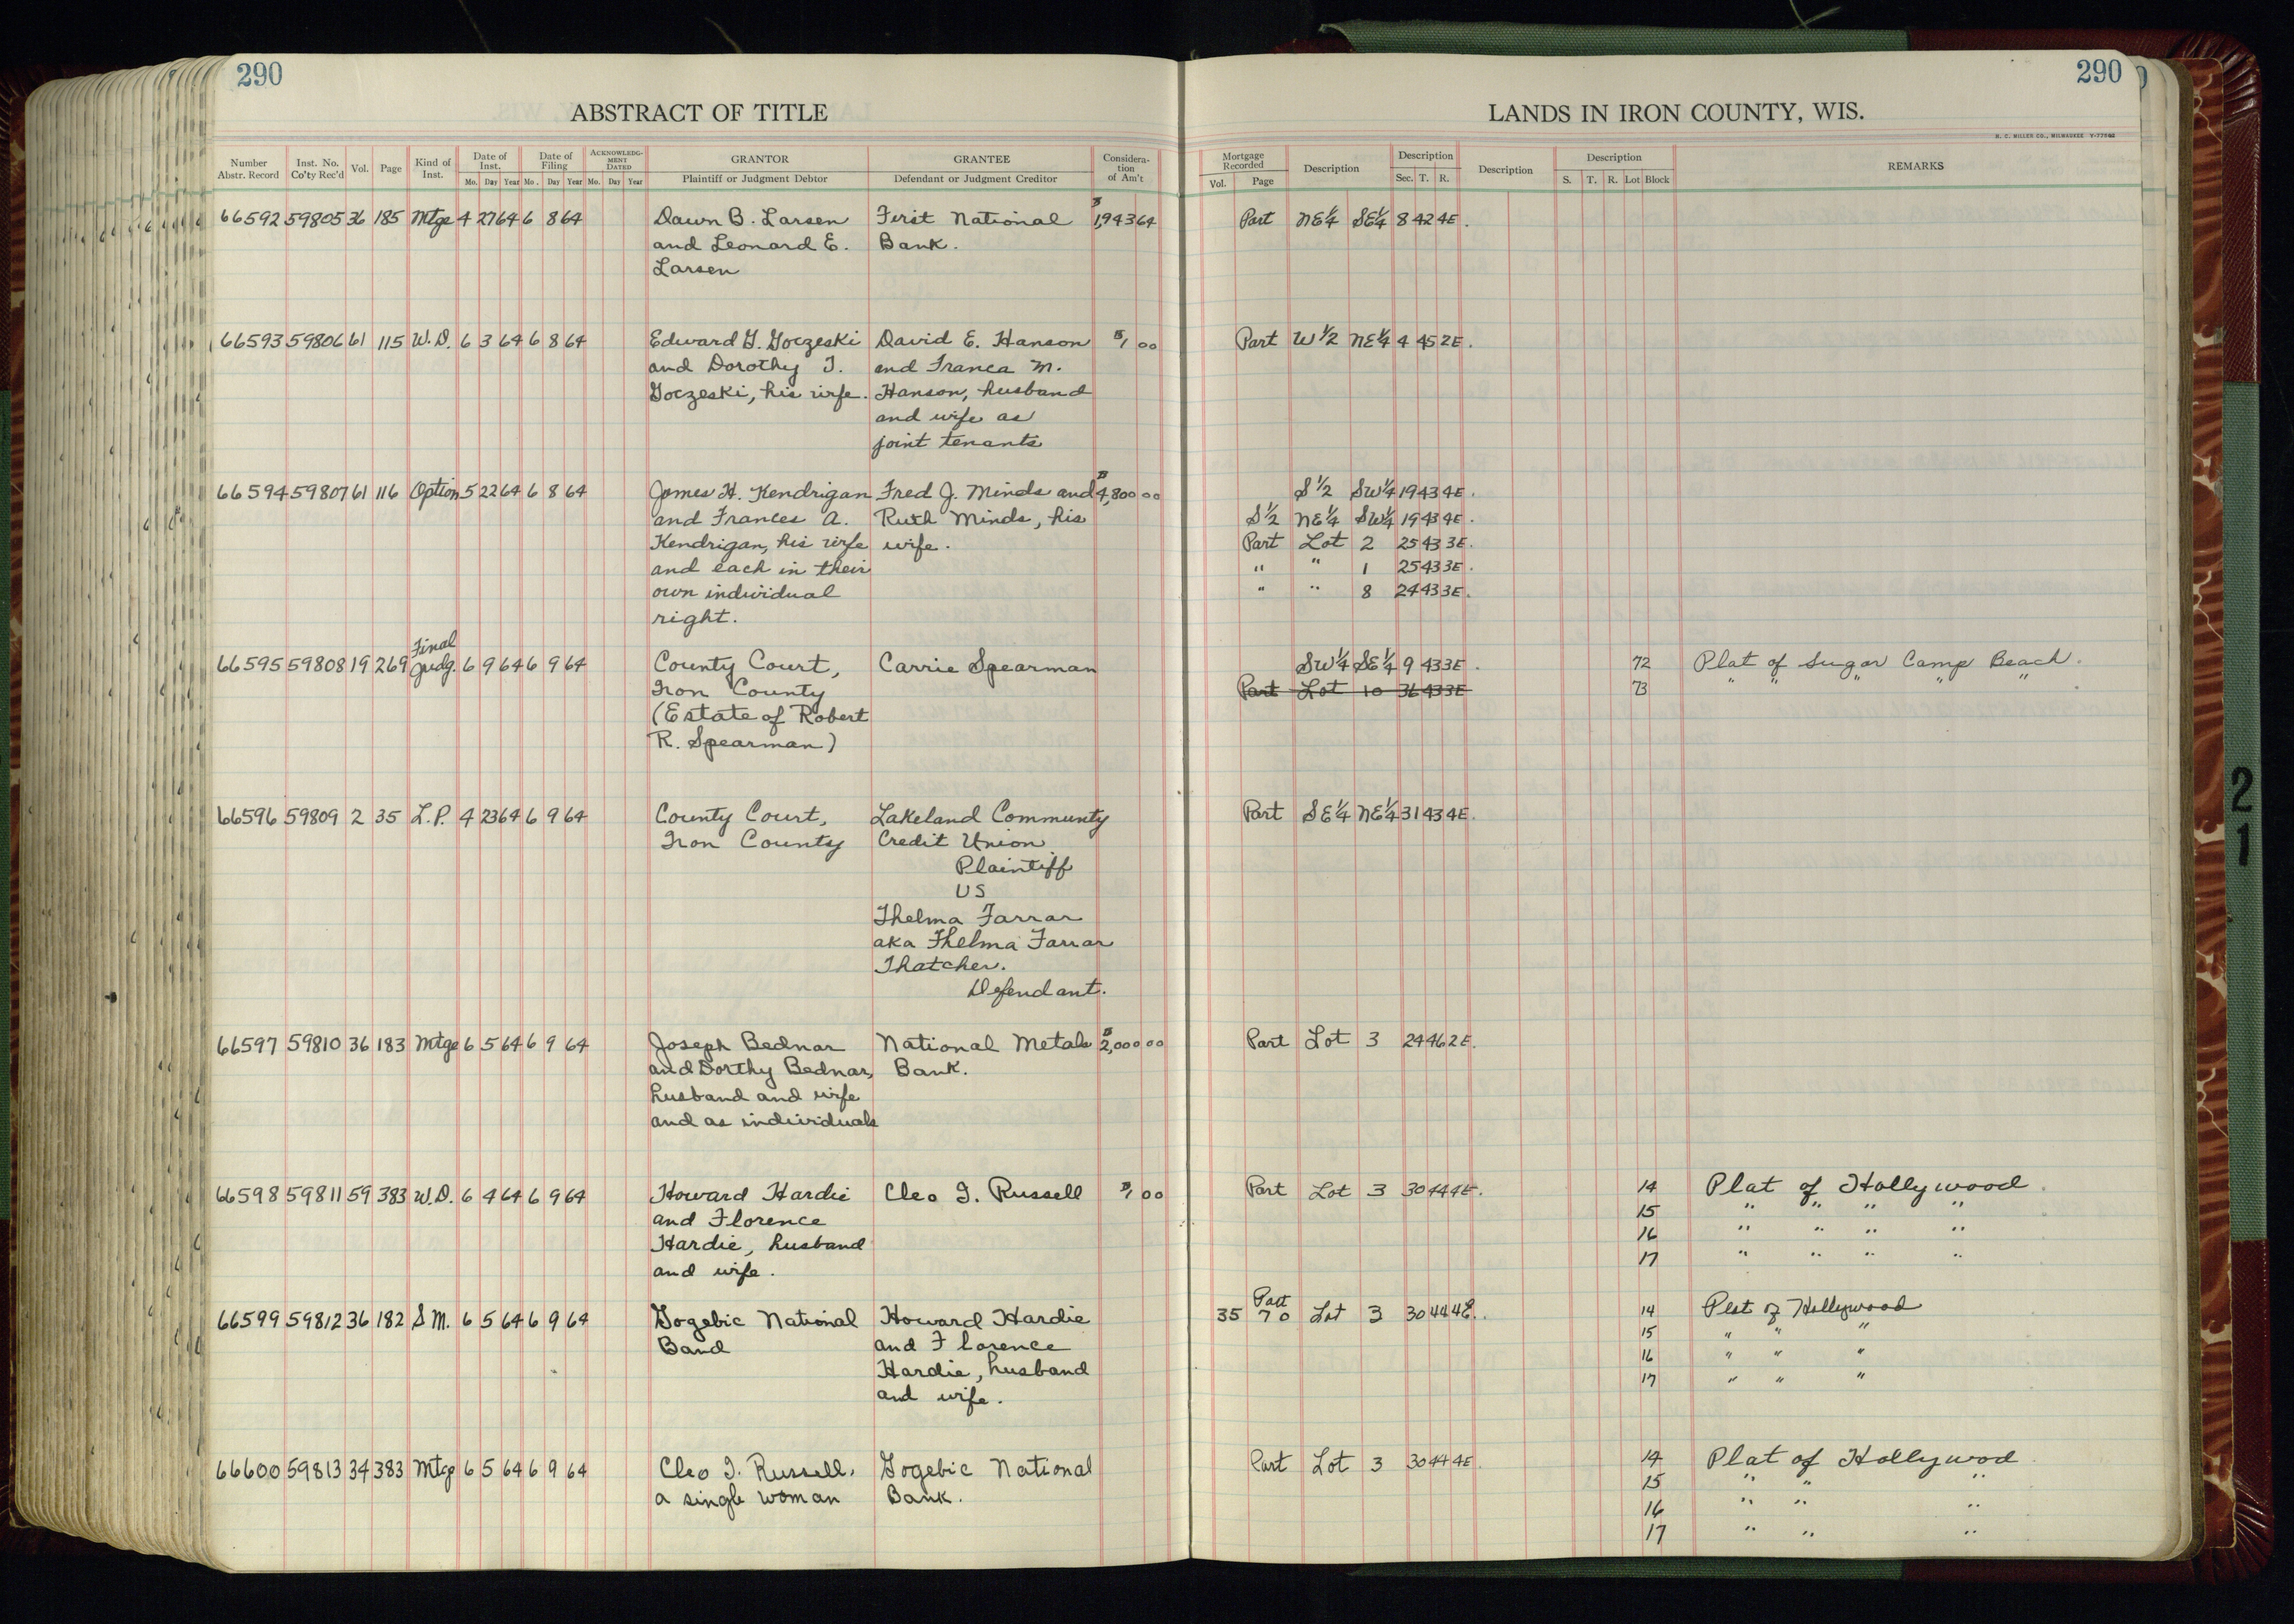 290
ABSTRACT OF TITLE
Number Abstr. Record | Inst. No. Co'ty Rec'd | Vol. | Page | Kind of Inst. | Date of Inst. Mo. Day Year | Date of Filing Mo. Day Year | ACKNOWLEDG-MENT DATED Mo. Day Year | GRANTOR Plaintiff or Judgment Debtor | GRANTEE Defendant or Judgment Creditor | Considera-tion of Am't
66592 59805 36 185 Mtge 4 27 64 6 8 64 Dawn B. Larsen First National $1,943 64
and Leonard E. Bank.
Larsen
66593 59806 61 115 W.D. 6 3 64 6 8 64 Edward G. Goczeski David E. Hanson $1 00
and Dorothy J. and Franca M.
Goczeski, his wife. Hanson, husband
and wife as
joint tenants
66594 59807 61 116 Option 5 22 64 6 8 64 James H. Kendrigan Fred J. Minds and $4,800 00
and Frances A. Ruth Minds, his
Kendrigan, his wife wife.
and each in their
own individual
right.
Final
66595 59808 19 269 Judg. 6 9 64 6 9 64 County Court, Carrie Spearman
Iron County
(Estate of Robert
R. Spearman)
66596 59809 2 35 L.P. 4 23 64 6 9 64 County Court, Lakeland Communty
Iron County Credit Union
Plaintiff
US
Thelma Farrar
aka Thelma Farrar
Thatcher.
Defendant.
66597 59810 36 183 Mtge 6 5 64 6 9 64 Joseph Bednar National Metals $2,000 00
and Dorthy Bednar, Bank.
husband and wife
and as individuals
66598 59811 59 383 W.D. 6 4 64 6 9 64 Howard Hardie Cleo J. Russell $1 00
and Florence
Hardie, husband
and wife.
66599 59812 36 182 S M. 6 5 64 6 9 64 Gogebic National Howard Hardie
Band and Florence
Hardie, husband
and wife.
66600 59813 34 383 Mtge 6 5 64 6 9 64 Cleo J. Russell, Gogebic National
a single woman Bank.
290
LANDS IN IRON COUNTY, WIS.
H. C. MILLER CO., MILWAUKEE
Mortgage Recorded Vol. Page | Description | Description Sec. T. R. | Description | Description S. T. R. Lot Block | REMARKS
Part NE¼ SE¼ 8 42 4E.
Part W½ NE¼ 4 45 2E.
S½ SW¼ 19 43 4E.
S½ NE¼ SW¼ 19 43 4E.
Part Lot 2 25 43 3E.
" " 1 25 43 3E.
" " 8 24 43 3E.
SW¼ SE¼ 9 43 3E. 72 Plat of Sugar Camp Beach.
Part Lot 10 36 43 3E 73 " " " " "
Part SE¼ NE¼ 31 43 4E.
Part Lot 3 24 46 2E.
Part Lot 3 30 44 4E. 14 Plat of Hollywood.
15 " " " "
16 " " " "
17 " " " "
Part
35 70 Lot 3 30 44 4E. 14 Plat of Hollywood
15 " " "
16 " " "
17 " " "
Part Lot 3 30 44 4E. 14 Plat of Hollywod
15 " " "
16 " " "
17 " " "
2
1